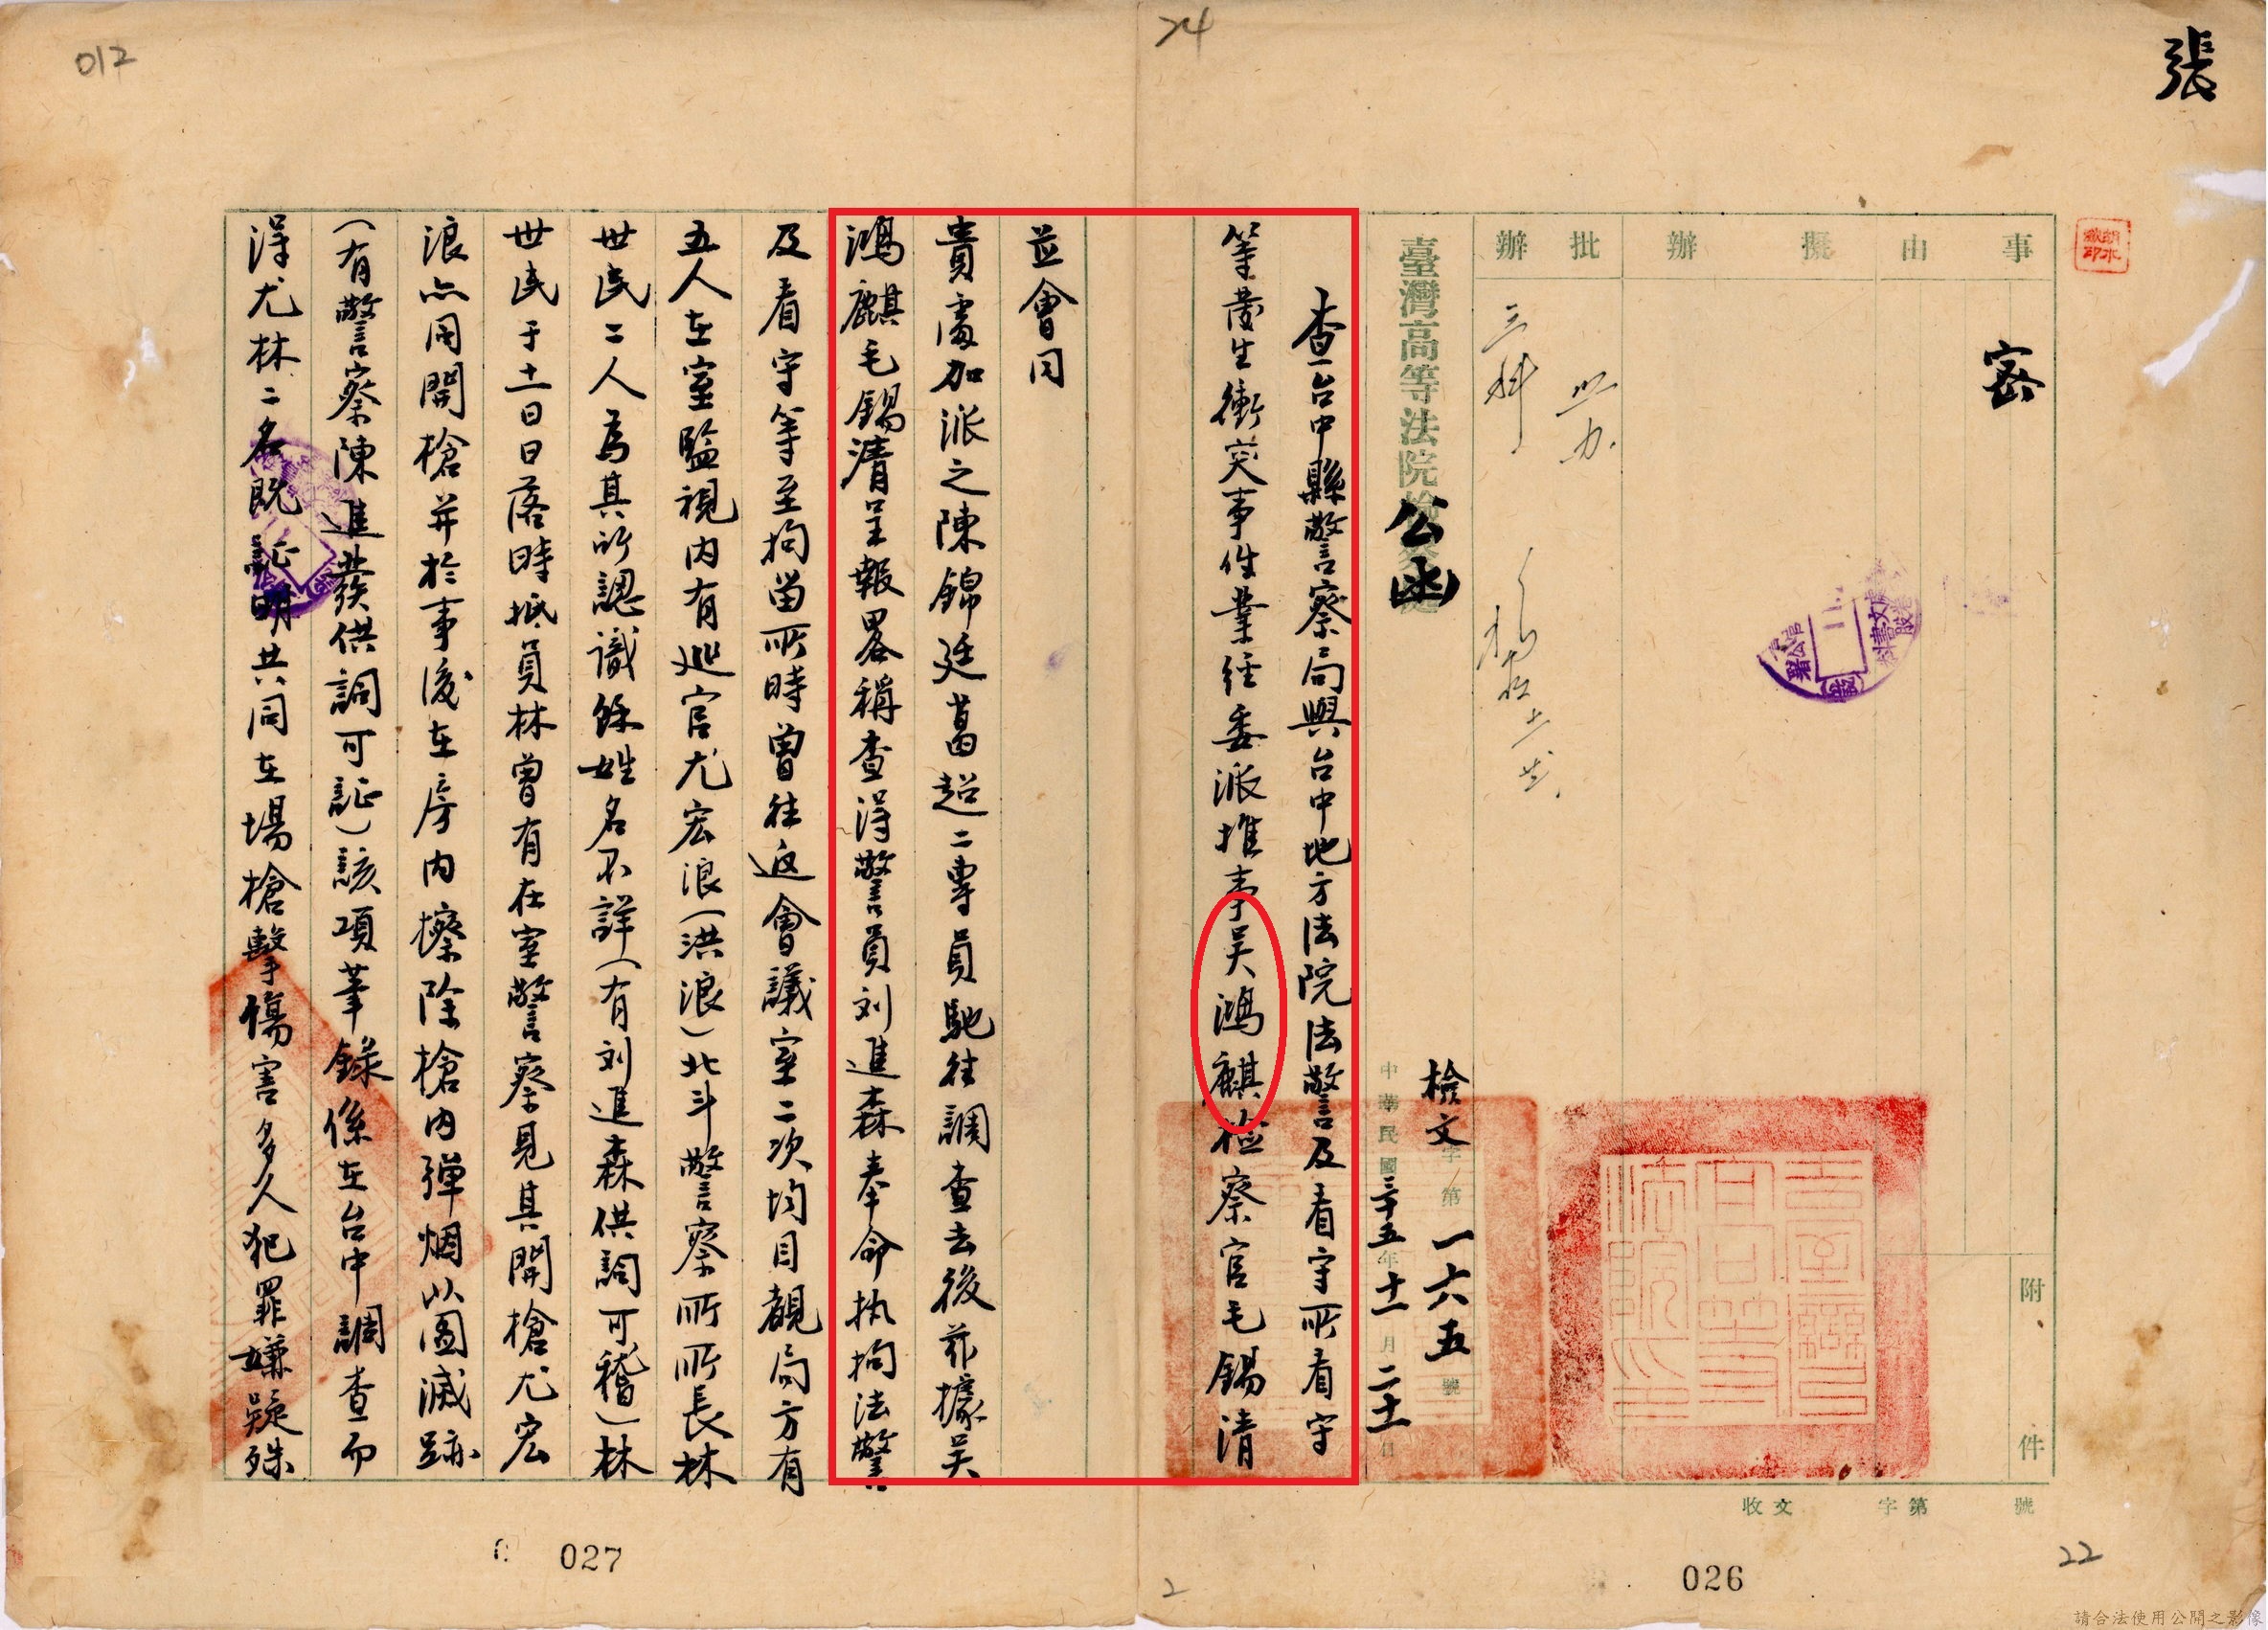 張
密
事由
擬辦
批辦
附件
收文 字第 號
照办
三科
臺灣高等法院檢察處
公函
檢文字第一六五號
中華民國三十五年十一月二十一日
查台中縣警察局與台中地方法院法警及看守所看守
等發生衝突事件業經委派推事吴鴻麒檢察官毛錫清
並會同
貴處加派之陳錦廷葛超二專員馳往調查去後茲據吴
鴻麒毛錫清呈報畧稱查得警員刘進森奉命执拘法警
及看守等至拘留所時曾往返會議室二次均目覩局方有
五人在室監視内有巡官尤宏浪（洪浪）北斗警察所所長林
世民二人為其所認識餘姓名不詳（有刘進森供詞可稽）林
世民于十一日日落時抵員林曾有在室警察見其開槍尤宏
浪亦用開槍并於事後在房内擦除槍内彈烟以图滅跡
（有警察陳進發供詞可証）該項筆錄係在台中調查而
得尤林二名既証明共同在場槍擊傷害多人犯罪嫌疑殊
012
24
22
2
026
027
請合法使用公開之影像